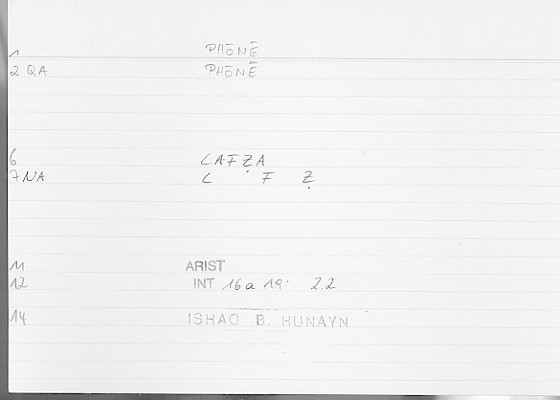 1 PHŌNĒ
2 QA PHŌNĒ
6 LAFẒA
7 NA L F Ẓ
11 ARIST
12 INT 16 a 19: 2.2
14 ISHAQ B. HUNAYN